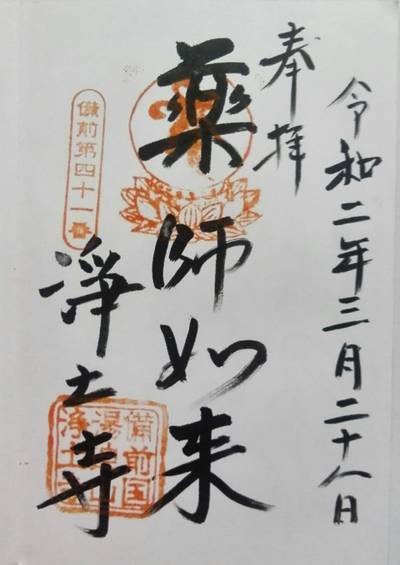 令和二年三月二十八日
奉拝
薬師如来
備前第四十一番
浄土寺
備前国
湯迫山
浄土寺